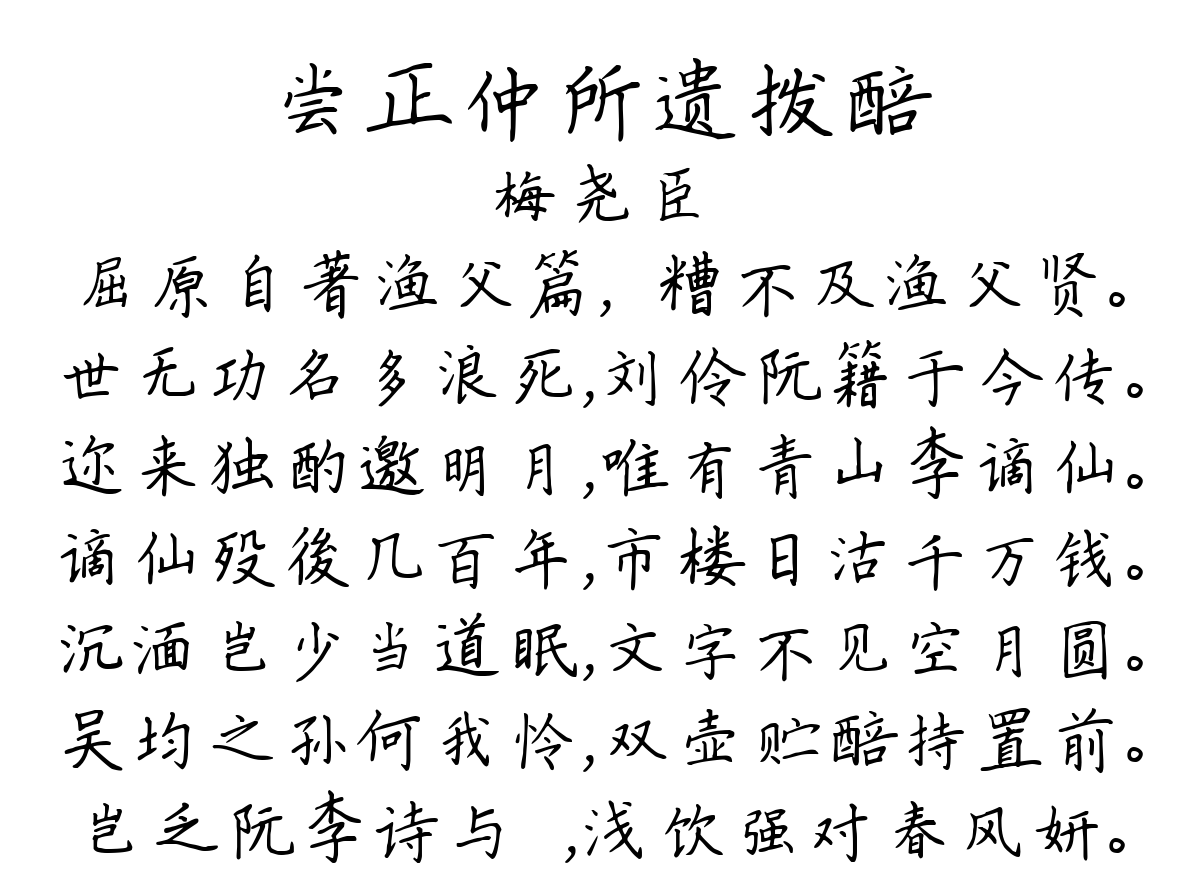 尝正仲所遗拨醅
梅尧臣
屈原自著渔父篇，糟不及渔父贤。
世无功名多浪死,刘伶阮籍于今传。
迩来独酌邀明月,唯有青山李谪仙。
谪仙殁後几百年,市楼日沽千万钱。
沉湎岂少当道眠,文字不见空月圆。
吴均之孙何我怜,双壶贮醅持置前。
岂乏阮李诗与 ,浅饮强对春风妍。